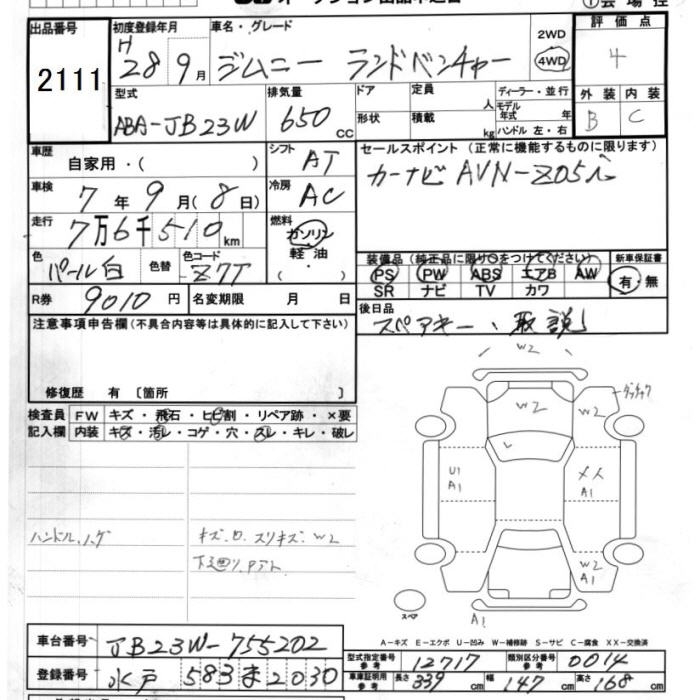 オークション出品申込書
出品番号 2111
初度登録年月 H 28 9月
車名・グレード ジムニー ランドベンチャー
2WD
4WD
評価点 4
外装 B 内装 C
型式 ABA-JB23W
排気量 650 CC
ドア
形状
定員 人
積載 kg
ディーラー・並行
モデル年式 年
ハンドル 左・右
車歴 自家用・( )
シフト AT
セールスポイント (正常に機能するものに限ります)
カーナビ AVN-Z05
車検 7年 9月(8日)
冷房 AC
走行 7万6千510km
燃料 ガソリン
軽油
・( ・ )
色 パール白 色替 色コード Z7T
装備品 (純正品に限り○をつけてください) 新車保証書
PS PW ABS エアB AW 有・無
SR ナビ TV カワ
R券 9010円 名変期限 月 日
後日品
スペアキー、取説
注意事項申告欄(不具合内容等は具体的に記入して下さい)
修復歴 有 〔箇所 〕
検査員 FW キズ・飛石・ヒビ割・リペア跡・×要
記入欄 内装 キズ・汚レ・コゲ・穴・スレ・キレ・破レ
ハンドルハゲ
キズ.ロ.スリキズ.W2
下廻り.Pアト
W2
W2
W2
L
U1
A1
メ人
A1
W2
A1
A1
スペア
A-キズ E-エクボ U-凹み W-補修跡 S-サビ C-腐食 XX-交換済
車台番号 JB23W-755202
型式指定番号 参考 12717 類別区分番号 参考 0014
登録番号 水戸 583 ま 2030
車庫証明用 参考 長さ 339cm 幅 147cm 高さ 168cm